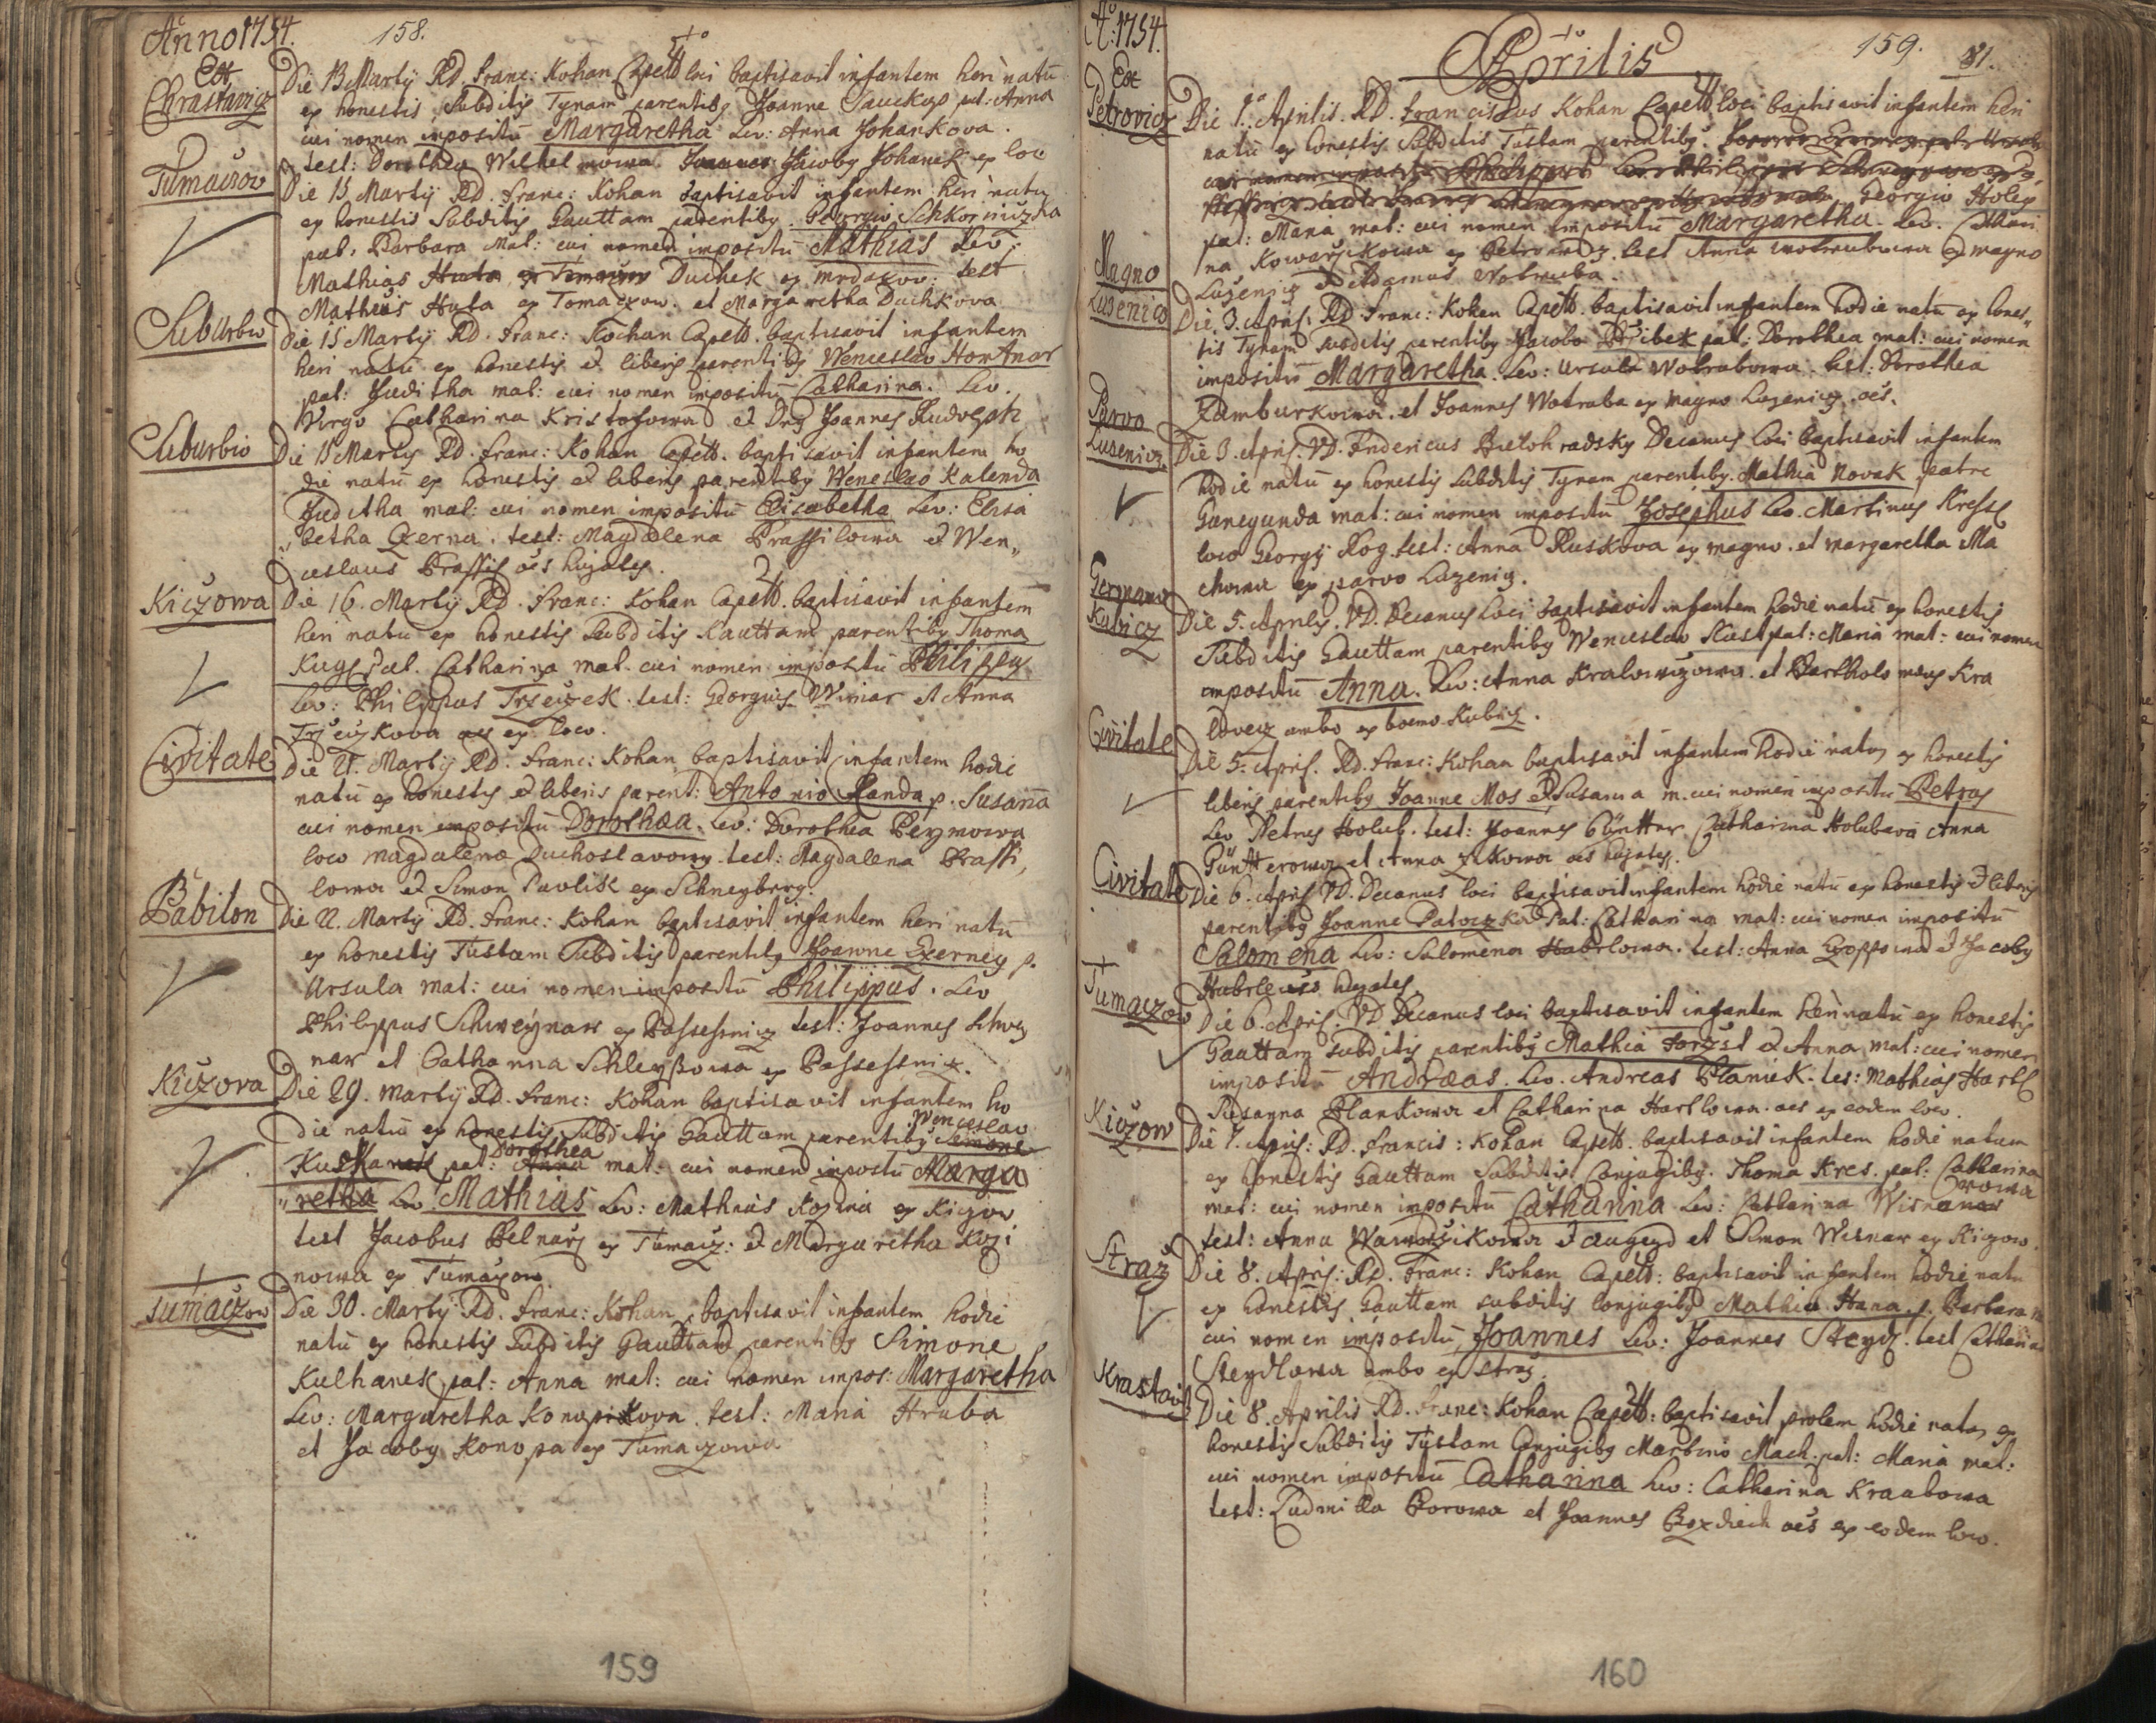 Anno 1754. 158.
Ex
Chrastavicz
Die 13 Martÿ RD. Franc: Kohan Capell loci baptisavit infantem heri natū
ex honestis Subditis Tynam parentibg Joanne Sauckup pat: Anna
cui nomen impositū Margaretha Lev: Anna Johankova.
test: Dorothea Jacobg Johanek ex loco
Tumaczow
Die 15 Martÿ RD. Franc: Kohan baptisavit infantem heri natū
ex honestis Subditis Gauttam parentibg Georgio Schkorniczka
pat, Barbara mat: cui nomen impositū Mathias Lev:
Mathias Duchek ex mrdakov: test
Matheus Huta ex Tomaczow. et Margaretha Duchkova
Suburbio
Die 15 Martÿ RD. Franc: Kochan Capell. baptisavit infantem
heri natū ex honestis et liberis parentibg Wenceslao
pat: Juditha mat: cui nomen impositū Catharina. Lev.
Virgo Catharina Kristofowa et Dng Joannes
Suburbio
Die 15 Martÿ RD. Franc: Kohan Capell. baptisavit infantem ho
die natū ex honestis et liberis parentibg Wenceslao Kalenda
Juditha mat: cui nomen impositū Elisabetha Lev: Elisa
betha Czerna. test: Magdalena Prassilowa et Wen„
ceslaus Prassil oēs hujates.
Kiczowa
Die 16. Martÿ RD. Franc: Kohan Capell. baptisavit infantem
heri natū ex honestis Subditis Gauttam parentibg Thoma
pat. Catharina mat. cui nomen impositū Philippg
Lev: Philippus Trzeczek. test: Georgius Wimar et Anna
Trzeczkova oēs ex loco.
Civitate
Die 21. Martÿ RD. Franc: Kohan baptisavit infantem hodie
natū ex honestis et liberis parent: Antonio Randa p. Susana
cui nomen impositū Dorothea. Lev: Dorothea Peymowa
loco Magdalena Duchoslavowy. test: Magdalena Prassi,
lowa et Simon Pavlik ex Schneyberg.
Babilon
Die 22. Martÿ RD. Franc: Kohan baptisavit infantem heri natū
ex honestis Tustam Subditis parentibg Joanne Czerney p.
Ursula mat: cui nomen impositū Philippus. Lev
Philippus Schweynar ex Passessnicz test: Joannes Schwey
nar et Catharina Schleyssowa ex Passessnicz.
Kiczova
Die 29. Martÿ RD. Franc: Kohan baptisavit infantem ho
die natū ex honestis Subditis Gauttam parentibg Simone Wenceslao
pat: Anna Dorothea mat: cui nomen impositū Marga
„retha Lev Mathias Lev: Mathias Kozina ex Kiczow
test Jacobus Belnarz ex Tumacz: et Margaretha Kozi
nowa ex Tumaczow.
Tumaczow
Die 30. Martÿ RD. Franc: Kohan, baptisavit infantem hodie
natū ex honestis Subditis Gauttam parentibg Simone
Kulhanek pat: Anna mat: cui nomen impos: Margaretha
Lev: Margaretha Konopikova. test: Maria Hruba
et Jacobg Konopa ex Tumaczowa
159
Aō: 1754. Aprilis 159. 81.
Ex
Petrovicz
Die 1.ma Aprilis. RD. Franciscus Kohan Capell loci baptisavit infantem heri
natū ex honestis Subditis Tustam parentibg.
Georgio Holep
pat: Maria mat: cui nomen impositū Margaretha. Lev. Cathari
na Kowarzikowa ex Petrowicz. test Anna Wotrubowa ex magno
Luzenicz et Adamus Wotruba.
Magno
Luzenicz
Die 3. April. RD Franc: Kohan Capell. baptisavit infantem hodie natū ex hones„
tis Tynam subditis parentibg Jacobo Przibek pat: Dorothea mat: cui nomen
impositū Margaretha. Lev: Ursula Wotrubowa. test: Dorothea
Zamburkowa. et Joannes Wotruba ex Magno Luzenicz. oēs.
Parvo
Lusenicz
Die 3. April. VD. Fridericus Bieloh radsky Decanus loci baptisavit infantem
hodie natū ex honestis Subditis Tynam parentibg. Mathia Novak patre
Gunegunda mat: cui nomen impositū Josephus Lev. Martinus Kressl
loco Georgÿ Rog. test: Anna Ruskova ex magno. et Margaretha Ma
chowa ex parvo Luzenicz.
Germano
Kubicz
Die 5. Aprilis. VD. Decanus loci baptisavit infantem hodie natū ex honestis
Subditis Gauttam parentibg Wenceslao Kust pat: Maria mat: cui nomen
impositū Anna. Lev: Anna Kralowczowa. et Bartholomeus Kra
lovecz ambo ex boemo Kubicz.
Civitate
Die 5. April. RD. Franc: Kohan baptisavit infantem hodie natum ex honestis
liberis parentibg Joanne Mos et Susanna m. cui nomen impositū Petrus
Lev Petrus Holub. test: Joannes Güntter Catharina Holubova Anna
Güntterowa et Anna Zikowa oēs hujates.
Civitate
Die 6. April VD. Decanus loci baptisavit infantem hodie natū ex honestis et liberis
parentibg Joanne Patoczka Pat: Catharina mat: cui nomen impositū
Salomena Lev: Salomena Haberlowa. test: Anna et Jacobg
hujates.
Tumaczow
Die 6. April. VD Decanus loci baptisavit infantem heri natū ex honestis
Gauttam subditis parentibg Mathia Forzst et Anna mat: cui nomen
impositū Andraeas. Lev. Andreas Planiek. tes: Mathias Hartl
Susanna Plankowa et Catharina Hartlowa. oēs ex eodem loco.
Kiczow
Die 7. April: RD. Francis: Kohan Capell. baptisavit infantem hodie natum
ex honestis Gauttam Subditis Conjugibg. Thoma Kres. pat: Catharina
mat: cui nomen impositū Catharina Lev: Catharina Wisnarowa
test: Anna Wawrzikowa ex et Simon Wisnar ex Kiczow.
Straz
Die 8. April: RD. Franc: Kohan Capell: baptisavit infantem hodie natū
ex honestis Gauttam subditis Conjugibg Mathia Hana p. Barbara m
cui nomen impositū Joannes Lev: Joannes Steydl. test Catharina
Steydlowa ambo ex Straz.
Krastavicz
Die 8. Aprilis RD. Franc: Kohan Capell: baptisavit prolem hodie natam ex
honestis Subditis Tustam Conjugibg Martino Mach. pat: Maria mat:
cui nomen impositū Catharina Lev: Catharina Kraabowa
test: Ludmilla Borowa et Joannes oēs ex eodem loco.
160